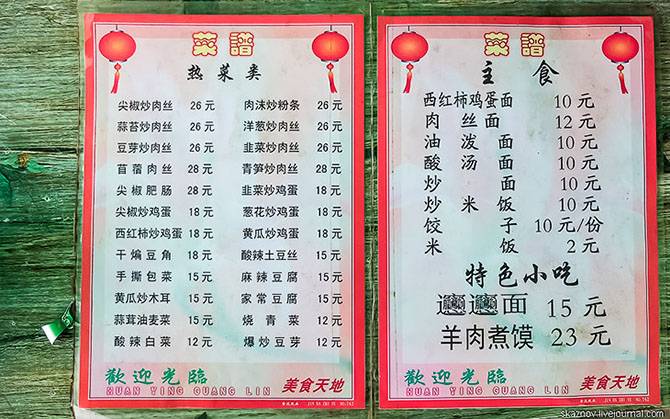 菜譜
热菜类
尖椒炒肉丝 26元 肉沫炒粉条 26元
蒜苔炒肉丝 26元 洋葱炒肉丝 26元
豆芽炒肉丝 26元 韭菜炒肉丝 26元
苜蓿肉丝 28元 青笋炒肉丝 28元
尖椒肥肠 28元 韭菜炒鸡蛋 18元
尖椒炒鸡蛋 18元 葱花炒鸡蛋 18元
西红柿炒鸡蛋 18元 黄瓜炒鸡蛋 18元
干煸豆角 18元 酸辣土豆丝 15元
手撕包菜 15元 麻辣豆腐 15元
黄瓜炒木耳 15元 家常豆腐 15元
蒜茸油麦菜 15元 烧青菜 12元
酸辣白菜 15元 爆炒豆芽 12元
歡迎光臨
HUAN YING GUANG LIN
美食天地
菜譜
主食
西红柿鸡蛋面 10元
肉丝面 12元
油泼面 10元
酸汤面 10元
炒面 10元
炒米饭 10元
饺子 10元/份
米饭 2元
特色小吃
𰻞𰻞面 15元
羊肉煮馍 23元
歡迎光臨
HUAN YING GUANG LIN
美食天地
skaznov.livejournal.com